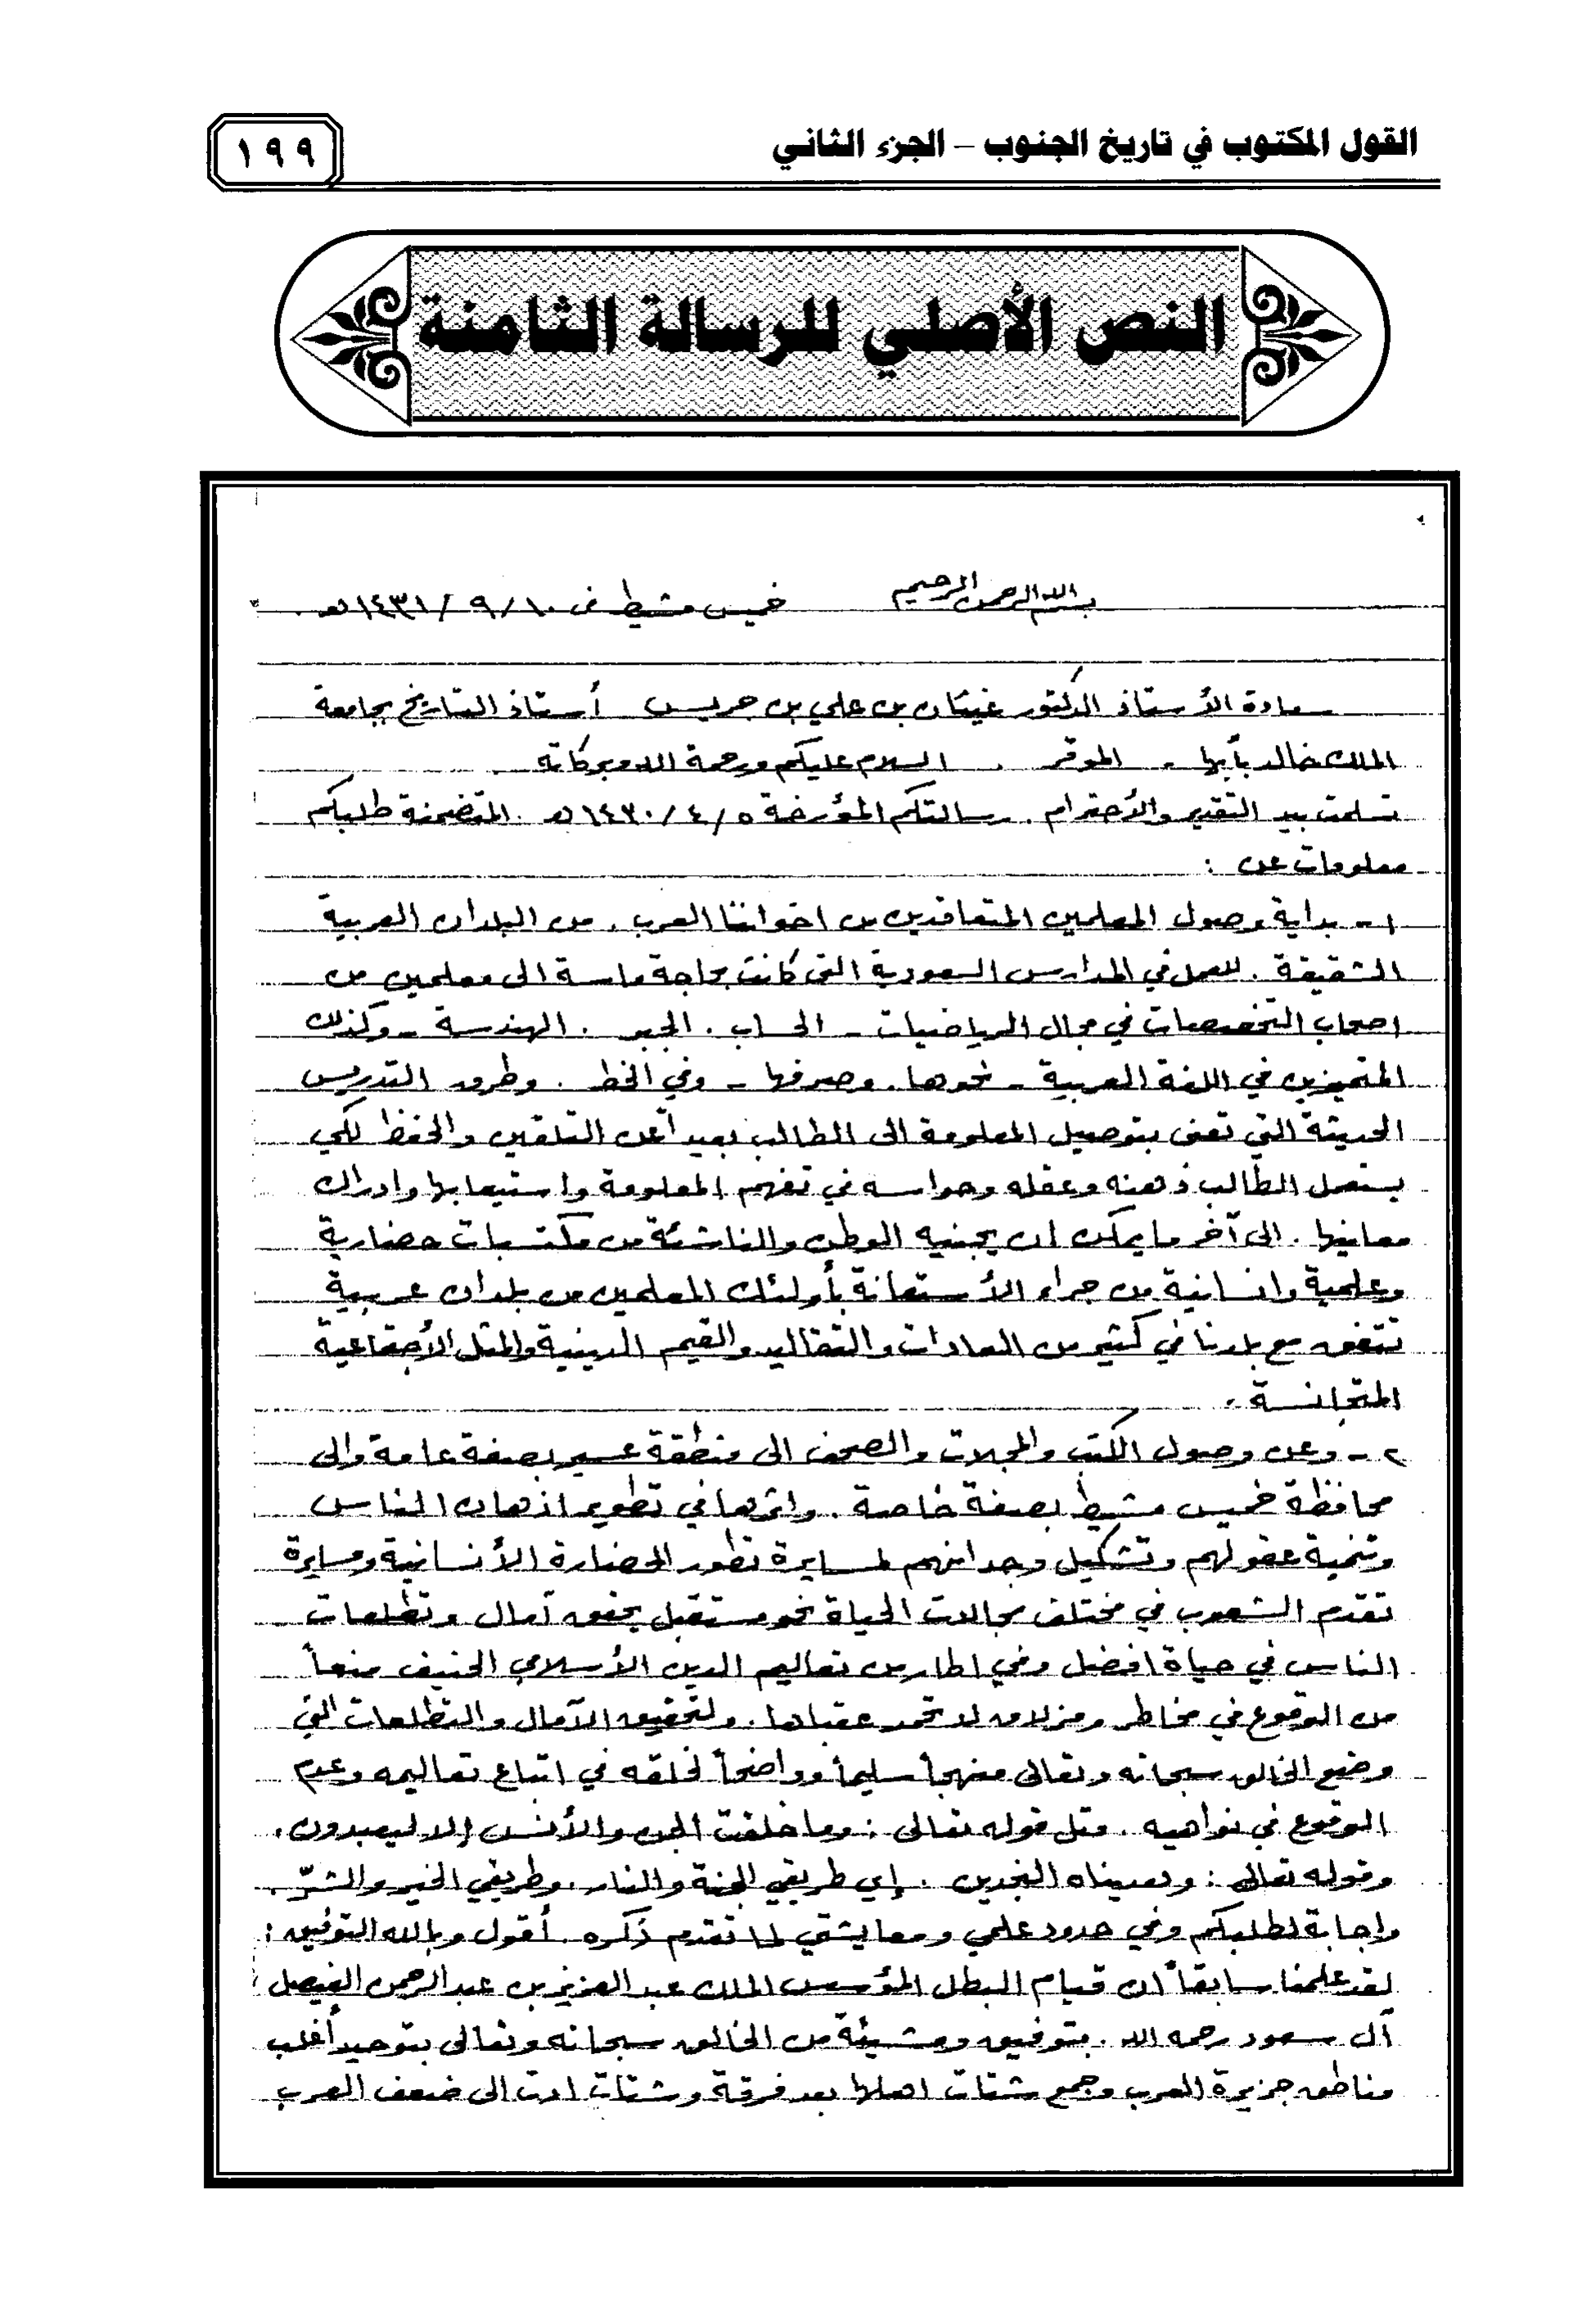 القول المكتوب في تاريخ الجنوب – الجزء الثاني
١٩٩
النص الأصلي للرسالة الثامنة
بسم الله الرحمن الرحيم
خميس مشيط في ١٠/٩/١٤٣١هـ .
سعادة الأستاذ الدكتور غيثان بن علي بن جريس أستاذ التاريخ بجامعة
الملك خالد بأبها . الموقر . السلام عليكم ورحمة الله وبركاته .
تسلمت بيد التقدير والأحترام . رسالتكم المؤرخة ٥/٤/١٤٣٠هـ . المتضمنة طلبكم
معلومات عن :
١ - بداية وصول المعلمين المتعاقدين من اخواننا العرب . من البلدان العربية
الشقيقة . للعمل في المدارس السعودية التي كانت بحاجة ماسة الى معلمين من
اصحاب التخصصات في مجال الرياضيات - الحساب . الجبر . الهندسة - وكذلك
المتميزين في اللغة العربية - نحوها . وصرفها - وفي الخط . وطرق التدريس
الحديثة التي تعنى بتوصيل المعلومة الى الطالب بعيداً عن التلقين والحفظ لكي
يستعمل الطالب ذهنه وعقله وحواسه في تفهم المعلومة واستيعابها وادراك
معانيها . الى آخر ما يمكن ان يجنيه الوطن والناشئة من مكتسبات حضارية
وعلمية وانسانية من جراء الأستعانة بأولئك المعلمين من بلدان عربية
تتفق مع بلدنا في كثير من العادات والتقاليد والقيم الدينية والمثل الأجتماعية
المتجانسة .
٢ - وعن وصول الكتب والمجلات والصحف الى منطقة عسير بصفة عامة والى
محافظة خميس مشيط بصفة خاصة . واثرها في تطوير اذهان الناس
وتنمية عقولهم وتشكيل وجدانهم لمسايرة تطور الحضارة الأنسانية ومسايرة
تقدم الشعوب في مختلف مجالات الحياة نحو مستقبل يحقق آمال وتطلعات
الناس في حياة افضل وفي اطار من تعاليم الدين الأسلامي الحنيف منعاً
من الوقوع في مخاطر ومزلاق لا تحمد عقباها . ولتحقيق الآمال والتطلعات التي
وضع الخالق سبحانه وتعالى منهجاً سليماً وواضحاً لخلقه في اتباع تعاليمه وعدم
الوقوع في نواهيه . مثل قوله تعالى : وما خلقت الجن والأنس إلا ليعبدون .
وقوله تعالى : وهديناه النجدين . إي طريقي الجنة والنار . وطريقي الخير والشرّ .
واجابة لطلبكم وفي حدود علمي ومعايشتي لما تقدم ذكره . أقول وبالله التوفيق :
لقد علمنا سابقاً ان قيام البطل المؤسس الملك عبد العزيز بن عبد الرحمن الفيصل
آل سعود رحمه الله . بتوفيق ومشيئة من الخالق سبحانه وتعالى بتوحيد أغلب
مناطق جزيرة العرب وجمع شتات اهلها بعد فرقة وشتات ادت الى ضعف العرب